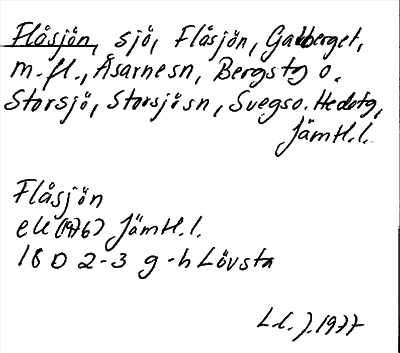 Flåsjön, sjö, Flåsjön, Galberget,
m.fl., Åsarnesn, Bergstg o.
Storsjö, Storsjösn, Svegs o. Hedetg,
Jämtl.l.
Flåsjön
ek (1976) Jämtl.l.
18 D 2-3 g-h Lövsta
L.L. J. 1977